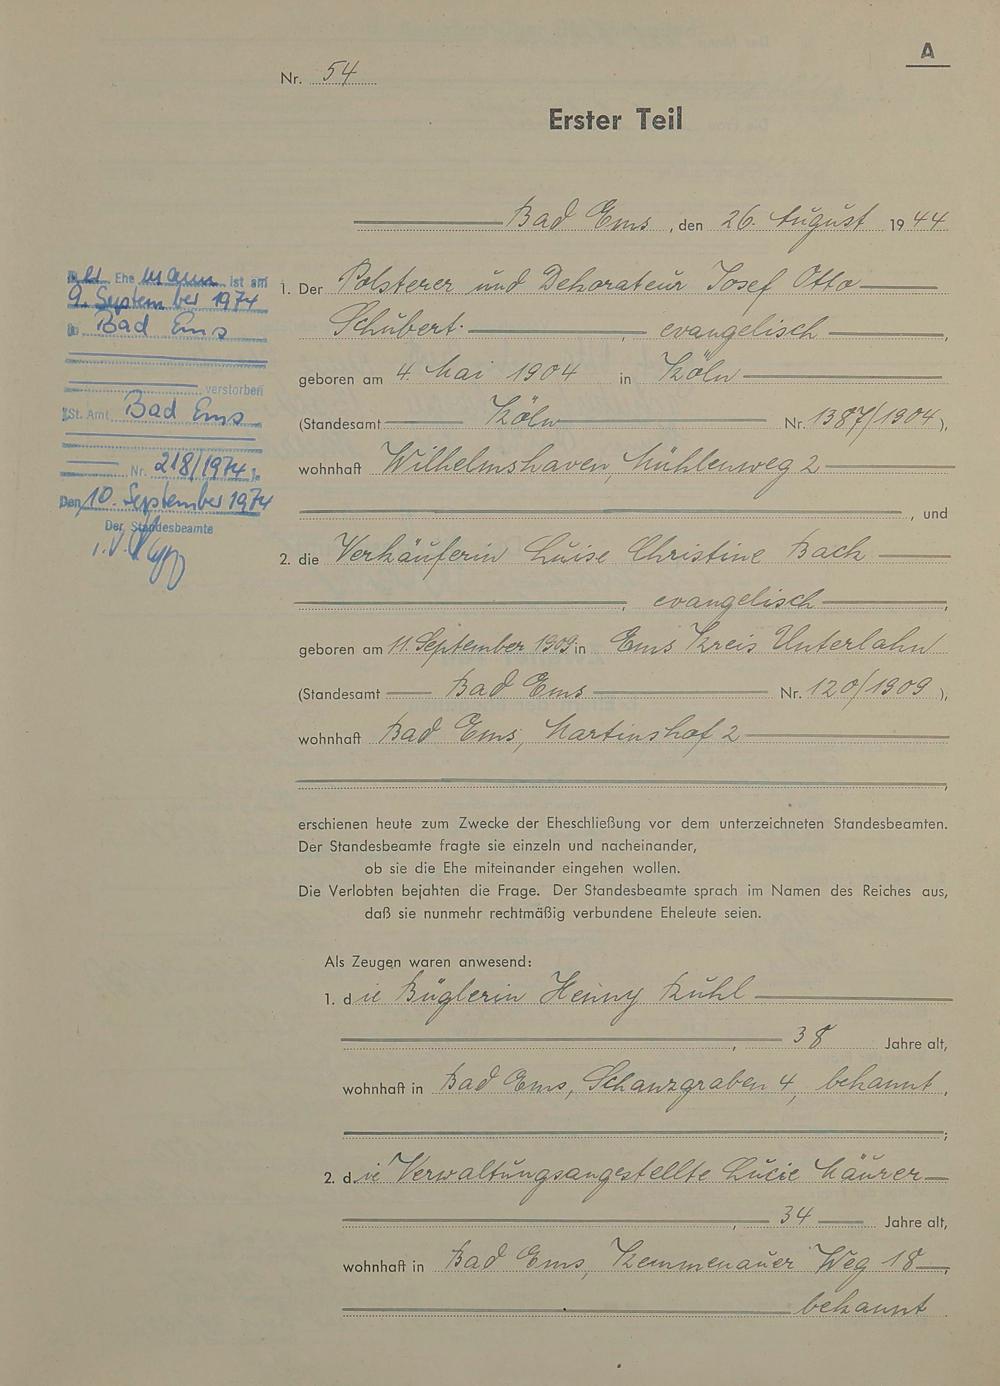 A
Nr. 54
Erster Teil
Bad Ems, den 26. August 1944
1. Der Polsterer und Dekorateur Josef Otto
Schubert, evangelisch,
geboren am 4. Mai 1904 in Köln
(Standesamt Köln Nr. 1387/1904),
wohnhaft Wilhelmshaven, Mühlenweg 2
, und
2. die Verkäuferin Luise Christine Bach
, evangelisch,
geboren am 11. September 1909 in Ems Kreis Unterlahn
(Standesamt Bad Ems Nr. 120/1909),
wohnhaft Bad Ems, Martinshof 2
,
erschienen heute zum Zwecke der Eheschließung vor dem unterzeichneten Standesbeamten.
Der Standesbeamte fragte sie einzeln und nacheinander,
ob sie die Ehe miteinander eingehen wollen.
Die Verlobten bejahten die Frage. Der Standesbeamte sprach im Namen des Reiches aus,
daß sie nunmehr rechtmäßig verbundene Eheleute seien.
Als Zeugen waren anwesend:
1. die Büglerin Henny Kuhl
, 38 Jahre alt,
wohnhaft in Bad Ems, Schanzgraben 4, bekannt,
;
2. die Verwaltungsangestellte Lucie Mäurer
, 34 Jahre alt,
wohnhaft in Bad Ems, Kemmenauer Weg 18,
bekannt
Der Ehemann ist am
9. September 1974
in Bad Ems
verstorben
St. Amt Bad Ems
Nr. 218/1974).
Den 10. September 1974
Der Standesbeamte
i.V.